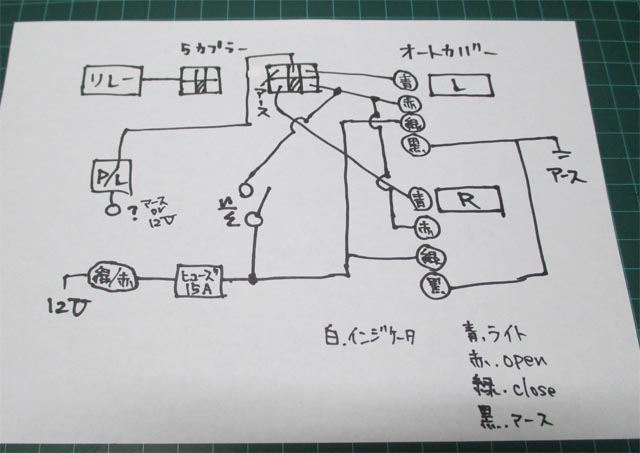 5カプラー
オートカバー
リレー
アース
青
L
赤
緑
黒
アース
P/L
?
アース
or
12V
S/W
青
R
赤
緑
黒
緑/赤
ヒューズ
15A
12V
白.インジケータ
青.ライト
赤.open
緑.close
黒.アース